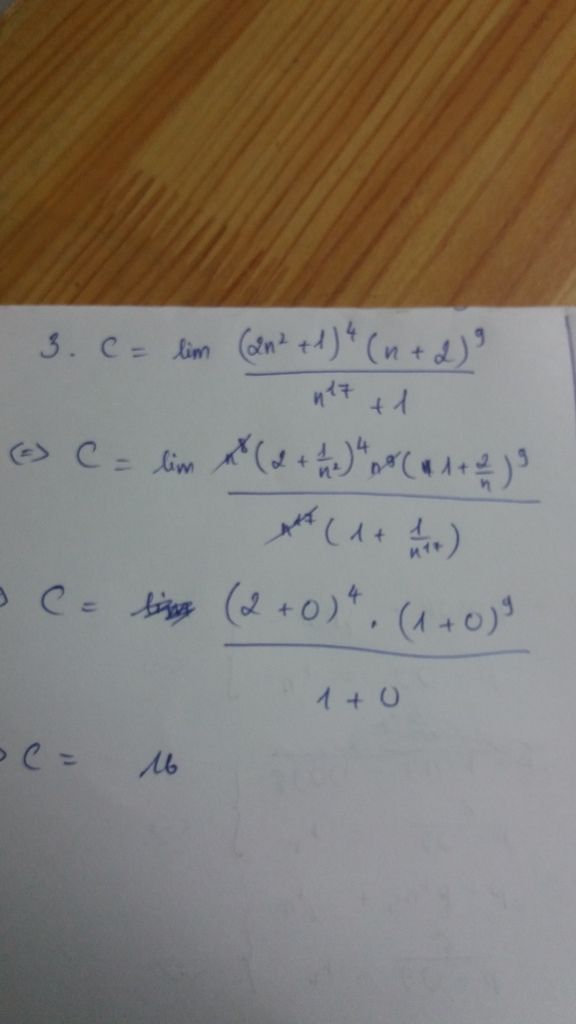 3. C = lim (2n² + 1)⁴ (n + 2)⁹ / n¹⁷ + 1
(=) C = lim n⁸ (2 + 1/n²)⁴ n⁹ (1 + 2/n)⁹ / n¹⁷ (1 + 1/n¹⁷)
C = (2 + 0)⁴ . (1 + 0)⁹ / 1 + 0
C = 16